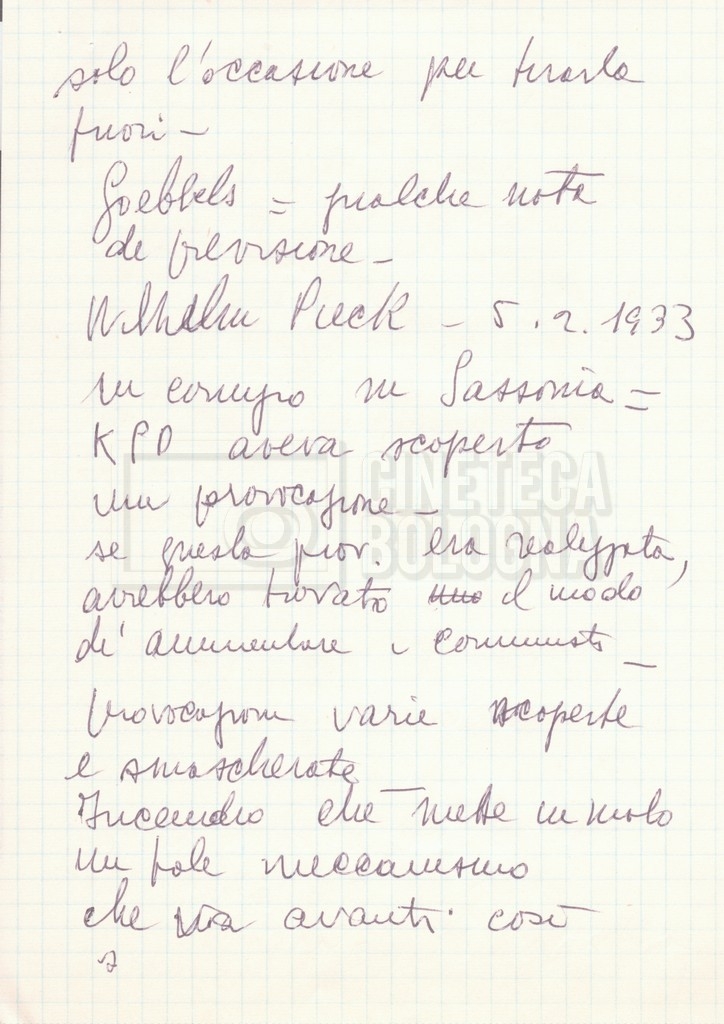 solo l'occasione per tirarla
fuori –
Goebbels = qualche nota
di previsione –
Wilhelm Pieck – 5.2.1933
un compagno in Sassonia =
KPD aveva scoperto
una provocazione –
se questa prov. era realizzata,
avrebbero trovato il modo
di ammentare i comunisti –
Provocazioni varie scoperte
e smascherate –
Incendio che mette in moto
un tale meccanismo
che va avanti così
CINETECA
BOLOGNA